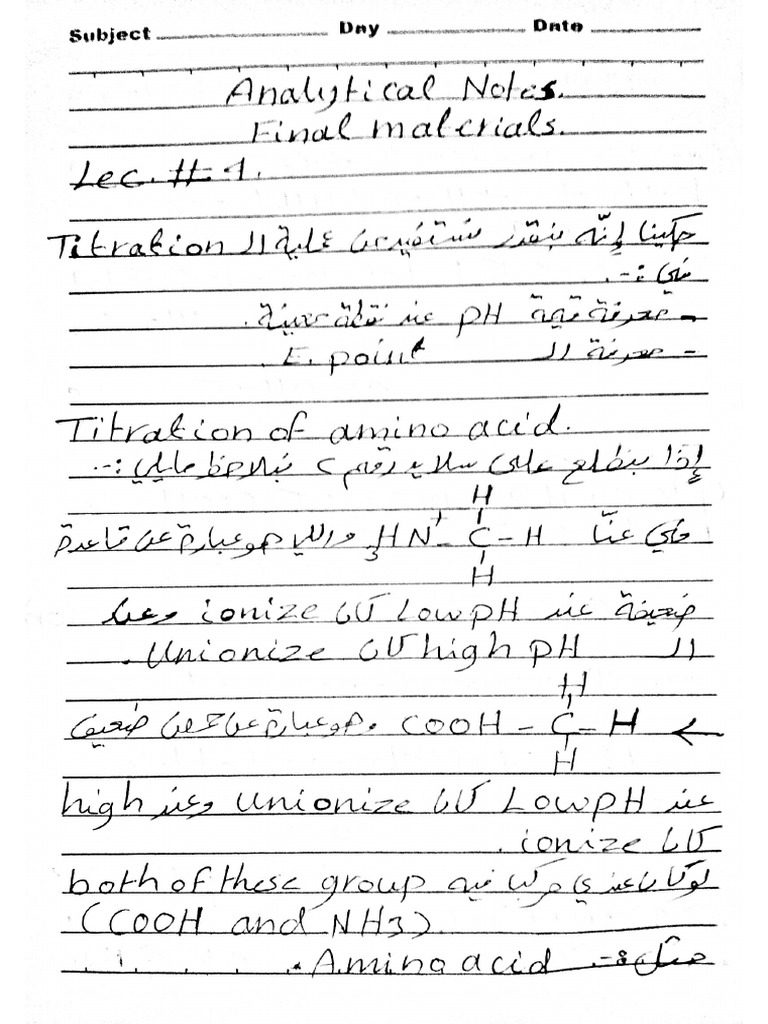 Subject Day Date
Analytical Notes.
Final materials.
Lec. # 1.
حكينا إنّه بنقدر نستفيد من عملية الـ Titration
في :-
- معرفة قيمة pH عند نقطة معينة.
- معرفة الـ E. point.
Titration of amino acid.
إذا بنطلع على سلايد رقم ٢ بنلاحظ مايلي :-
H
في عنّا H₃N⁺ - C - H واللي هو عبارة عن قاعدة
H
ضعيفة عند Low pH كان ionize وعند
الـ high pH كان Unionize.
H
← H - C - COOH وهو عبارة عن حمض ضعيف
H
عند Low pH كان Unionize وعند high
كان ionize.
لو كان عندي مركب فيه both of these group
(COOH and NH3)
مثل :- Amino acid.